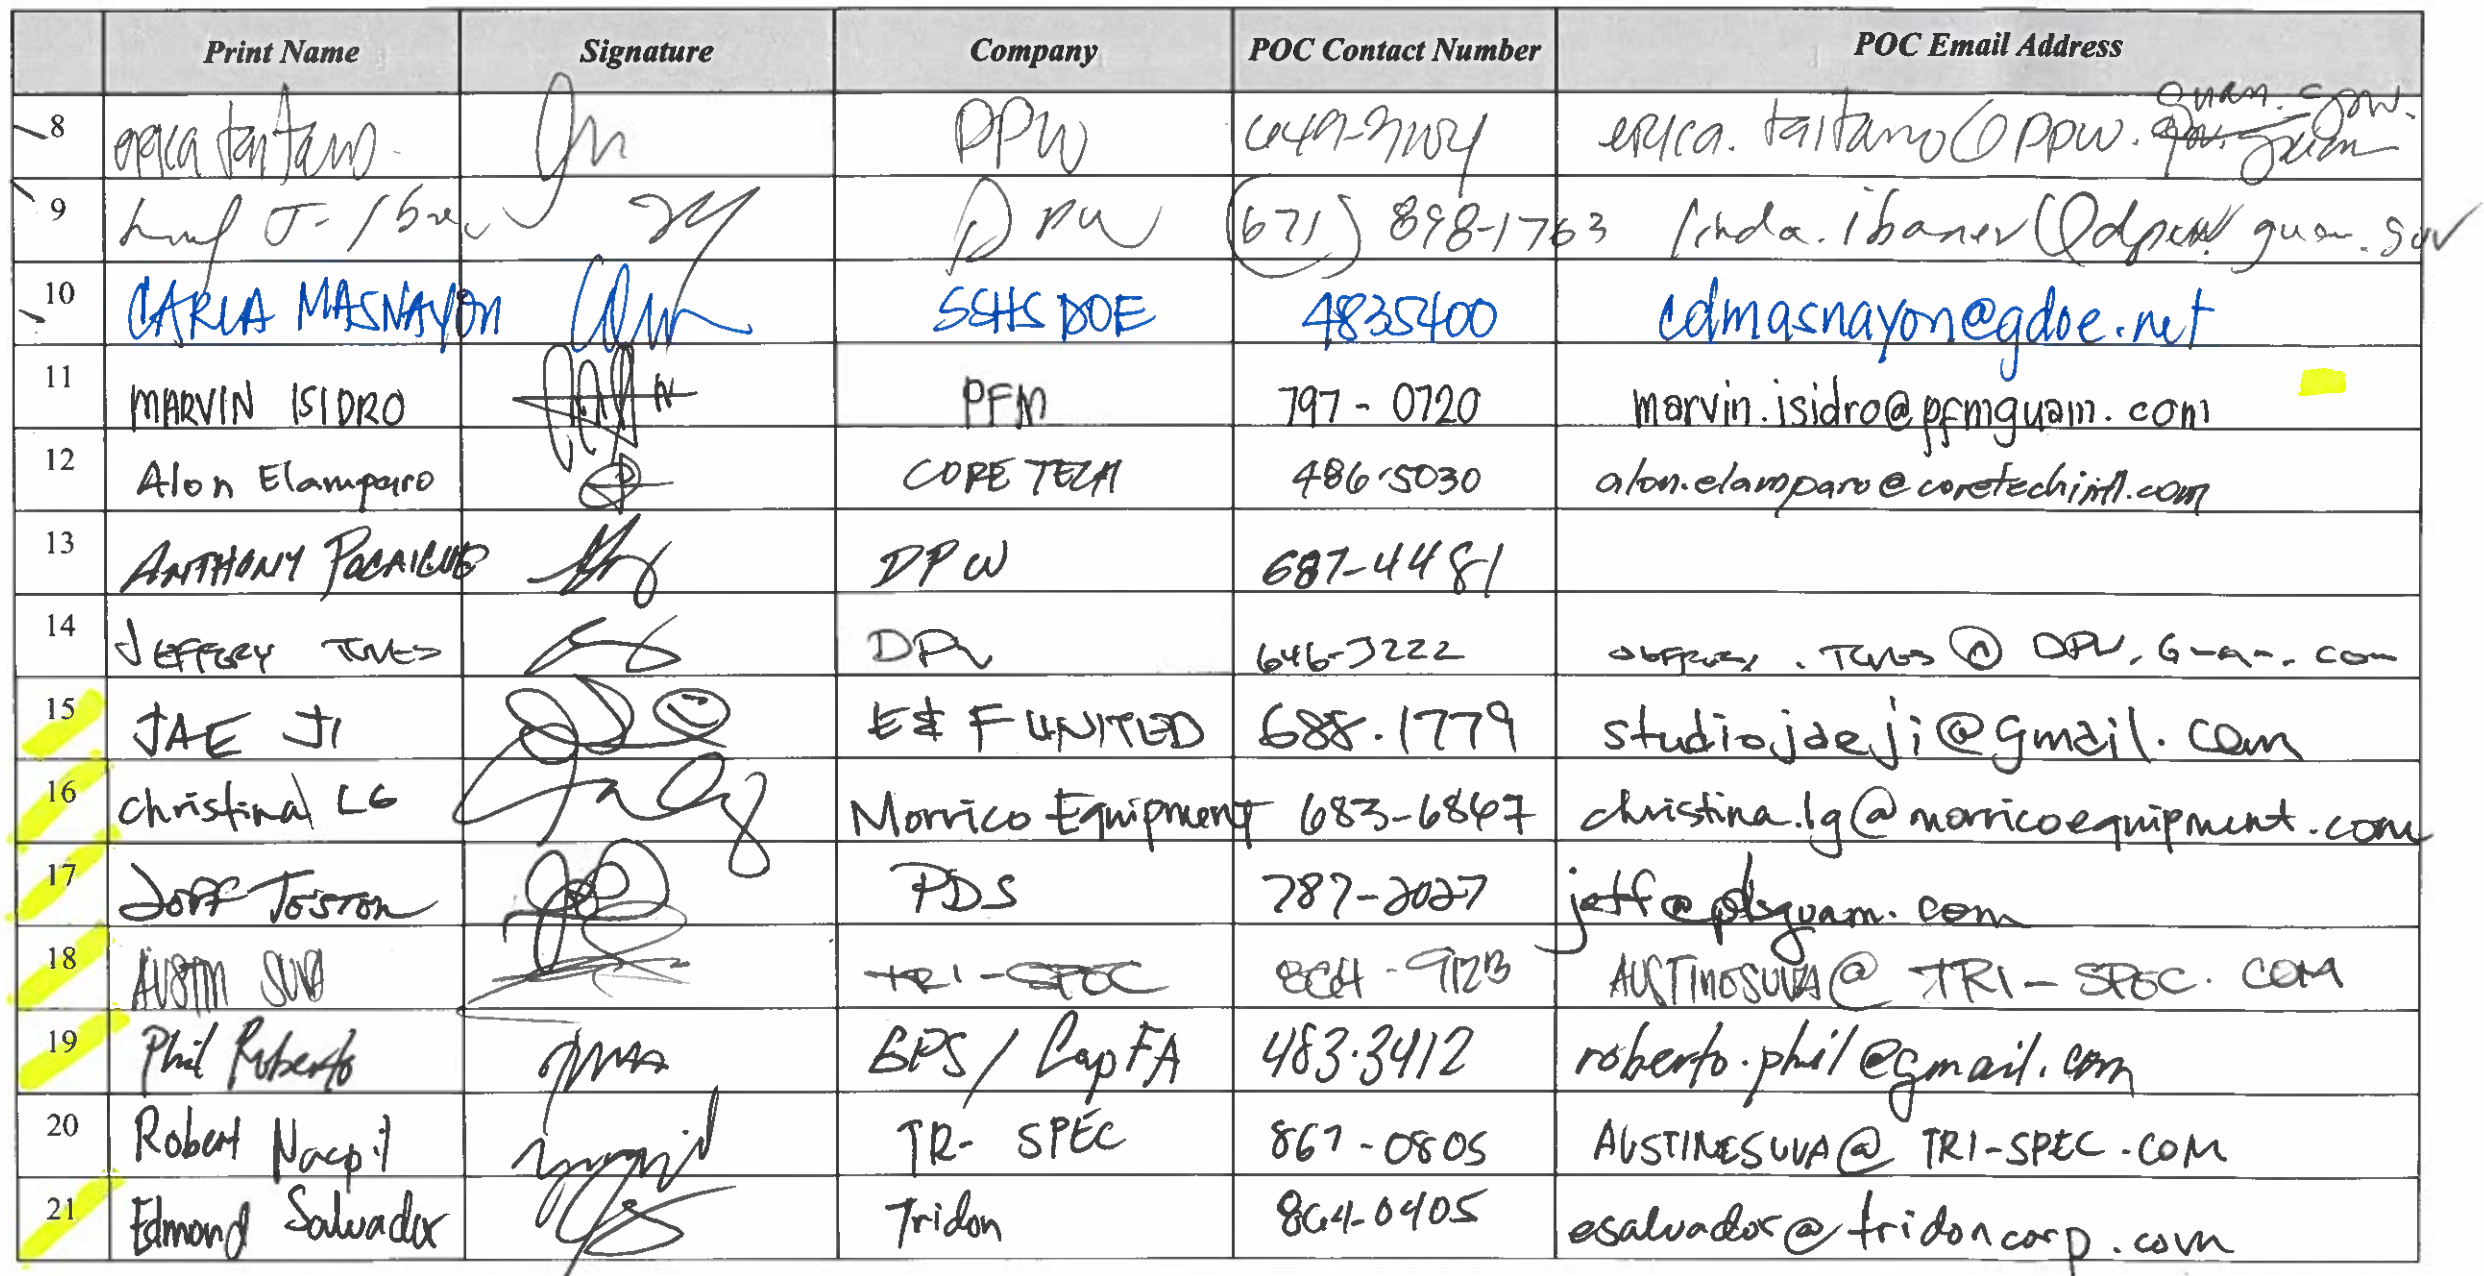 Print Name Signature Company POC Contact Number POC Email Address
8 erica taitano DPW 649-3104 erica.taitano@dpw. guam.gov.
9 J. DPW (671) 898-1763 linda.ibanez@dpw.guam.gov
10 CARLA MASNAYON SSHS DOE 4835400 cdmasnayon@gdoe.net
11 MARVIN ISIDRO PFM 797-0720 marvin.isidro@pfmguam.com
12 Alon Elamparo CORE TECH 486-5030 alon.elamparo@coretechintl.com
13 ANTHONY DPW 687-4481
14 JEFFERY DPW 646-3222
15 JAE JI E & F UNITED 688.1779 studiojaeji@gmail.com
16 christina LG Morrico Equipment 683-6847 christina.lg@morricoequipment.com
17 Jeff Toston PDS 787-2027 jeff@pdsguam.com
18 AUSTIN SUVA TRI-SPEC AUSTINESUVA@TRI-SPEC.COM
19 Phil Roberto BPS / CapFA 483-3412 roberto.phil@gmail.com
20 Robert Nacpil TRI-SPEC 867-0805 AUSTINESUVA@TRI-SPEC.COM
21 Edmond Salvador Tridon 864-0405 esalvador@tridoncorp.com